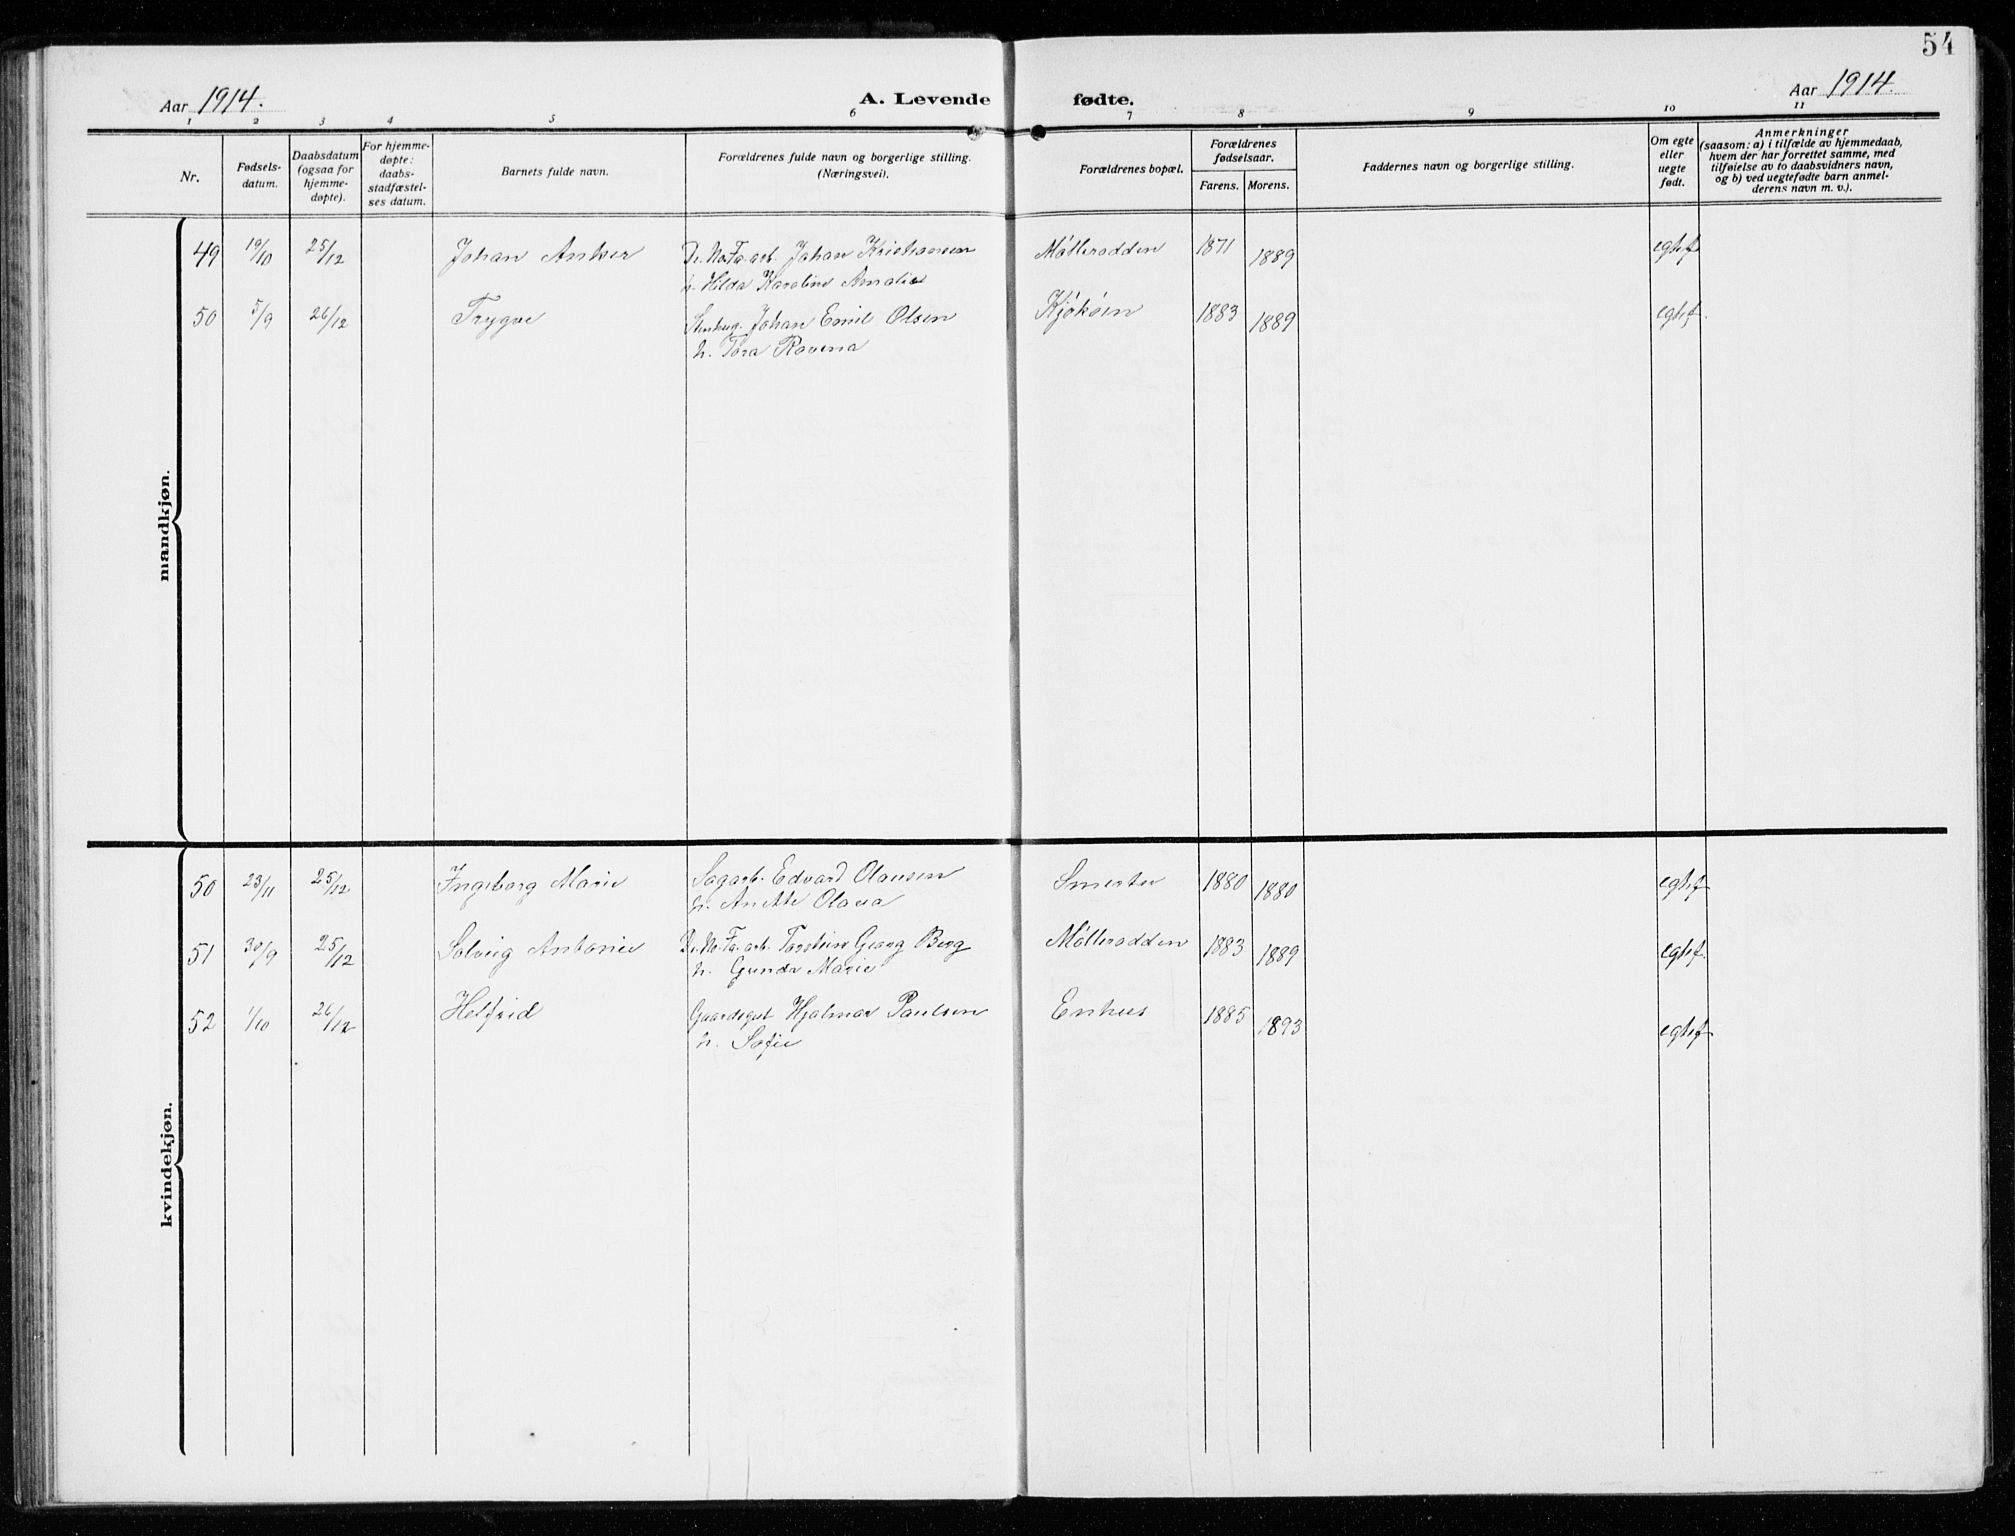 54
Aar 1914.
A. Levende fødte.
Aar 1914.
1 2 3 4 5 6 7 8 9 10 11
Nr.
Fødsels-
datum.
Daabsdatum
(ogsaa for
hjemme-
døpte).
For hjemme-
døpte:
daabs-
stadfæstel-
ses datum.
Barnets fulde navn.
Forældrenes fulde navn og borgerlige stilling.
(Næringsvei).
Forældrenes bopæl.
Forældrenes
fødselsaar.
Farens. Morens.
Faddernes navn og borgerlige stilling.
Om egte
eller
uegte
født.
Anmerkninger
(saasom: a) i tilfælde av hjemmedaab,
hvem der har forrettet samme, med
tilføielse av to daabsvidners navn,
og b) ved uegtefødte barn anmel-
derens navn m. v.).
mandkjøn.
49 19/10 25/12 Johan Anker Johan Kristiansen Møllerodden 1871 1889 egtef
h. Hilda Karoline Amalie
50 5/9 26/12 Trygve Stenhug. Johan Emil Olsen Kjøkøen 1883 1889 egtef.
h. Tora Rovena
kvindekjøn.
50 23/11 25/12 Ingeborg Marie Sagarb. Edvard Olausen Smertu 1880 1880 egtef
h. Anette Olava
51 30/9 25/12 Solveig Antonie Torstein Georg Berg Møllerodden 1883 1889 egtef.
h. Gunda Marie
52 1/10 26/12 Helfrid Gaardsgut Hjalmar Paulsen Enhus 1885 1893 egtef
h. Sofie